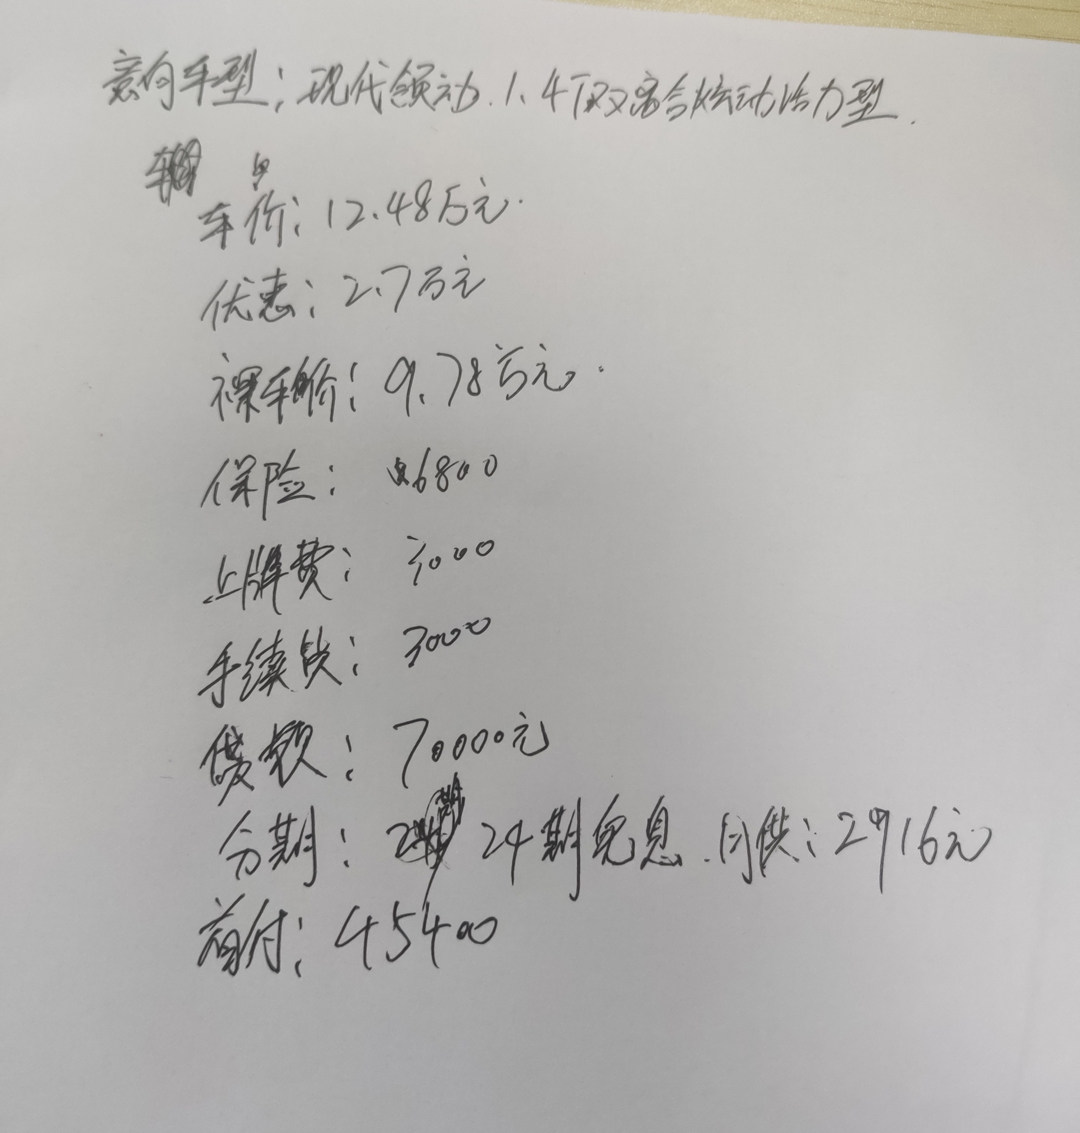 意向车型：现代领动.1.4T双离合炫动活力型.
车价：12.48万元.
优惠：2.7万元
裸车价：9.78万元.
保险：6800
上牌费：3000
手续费：3000
贷款：70000元
分期：24期免息.月供：2916元
首付：45400